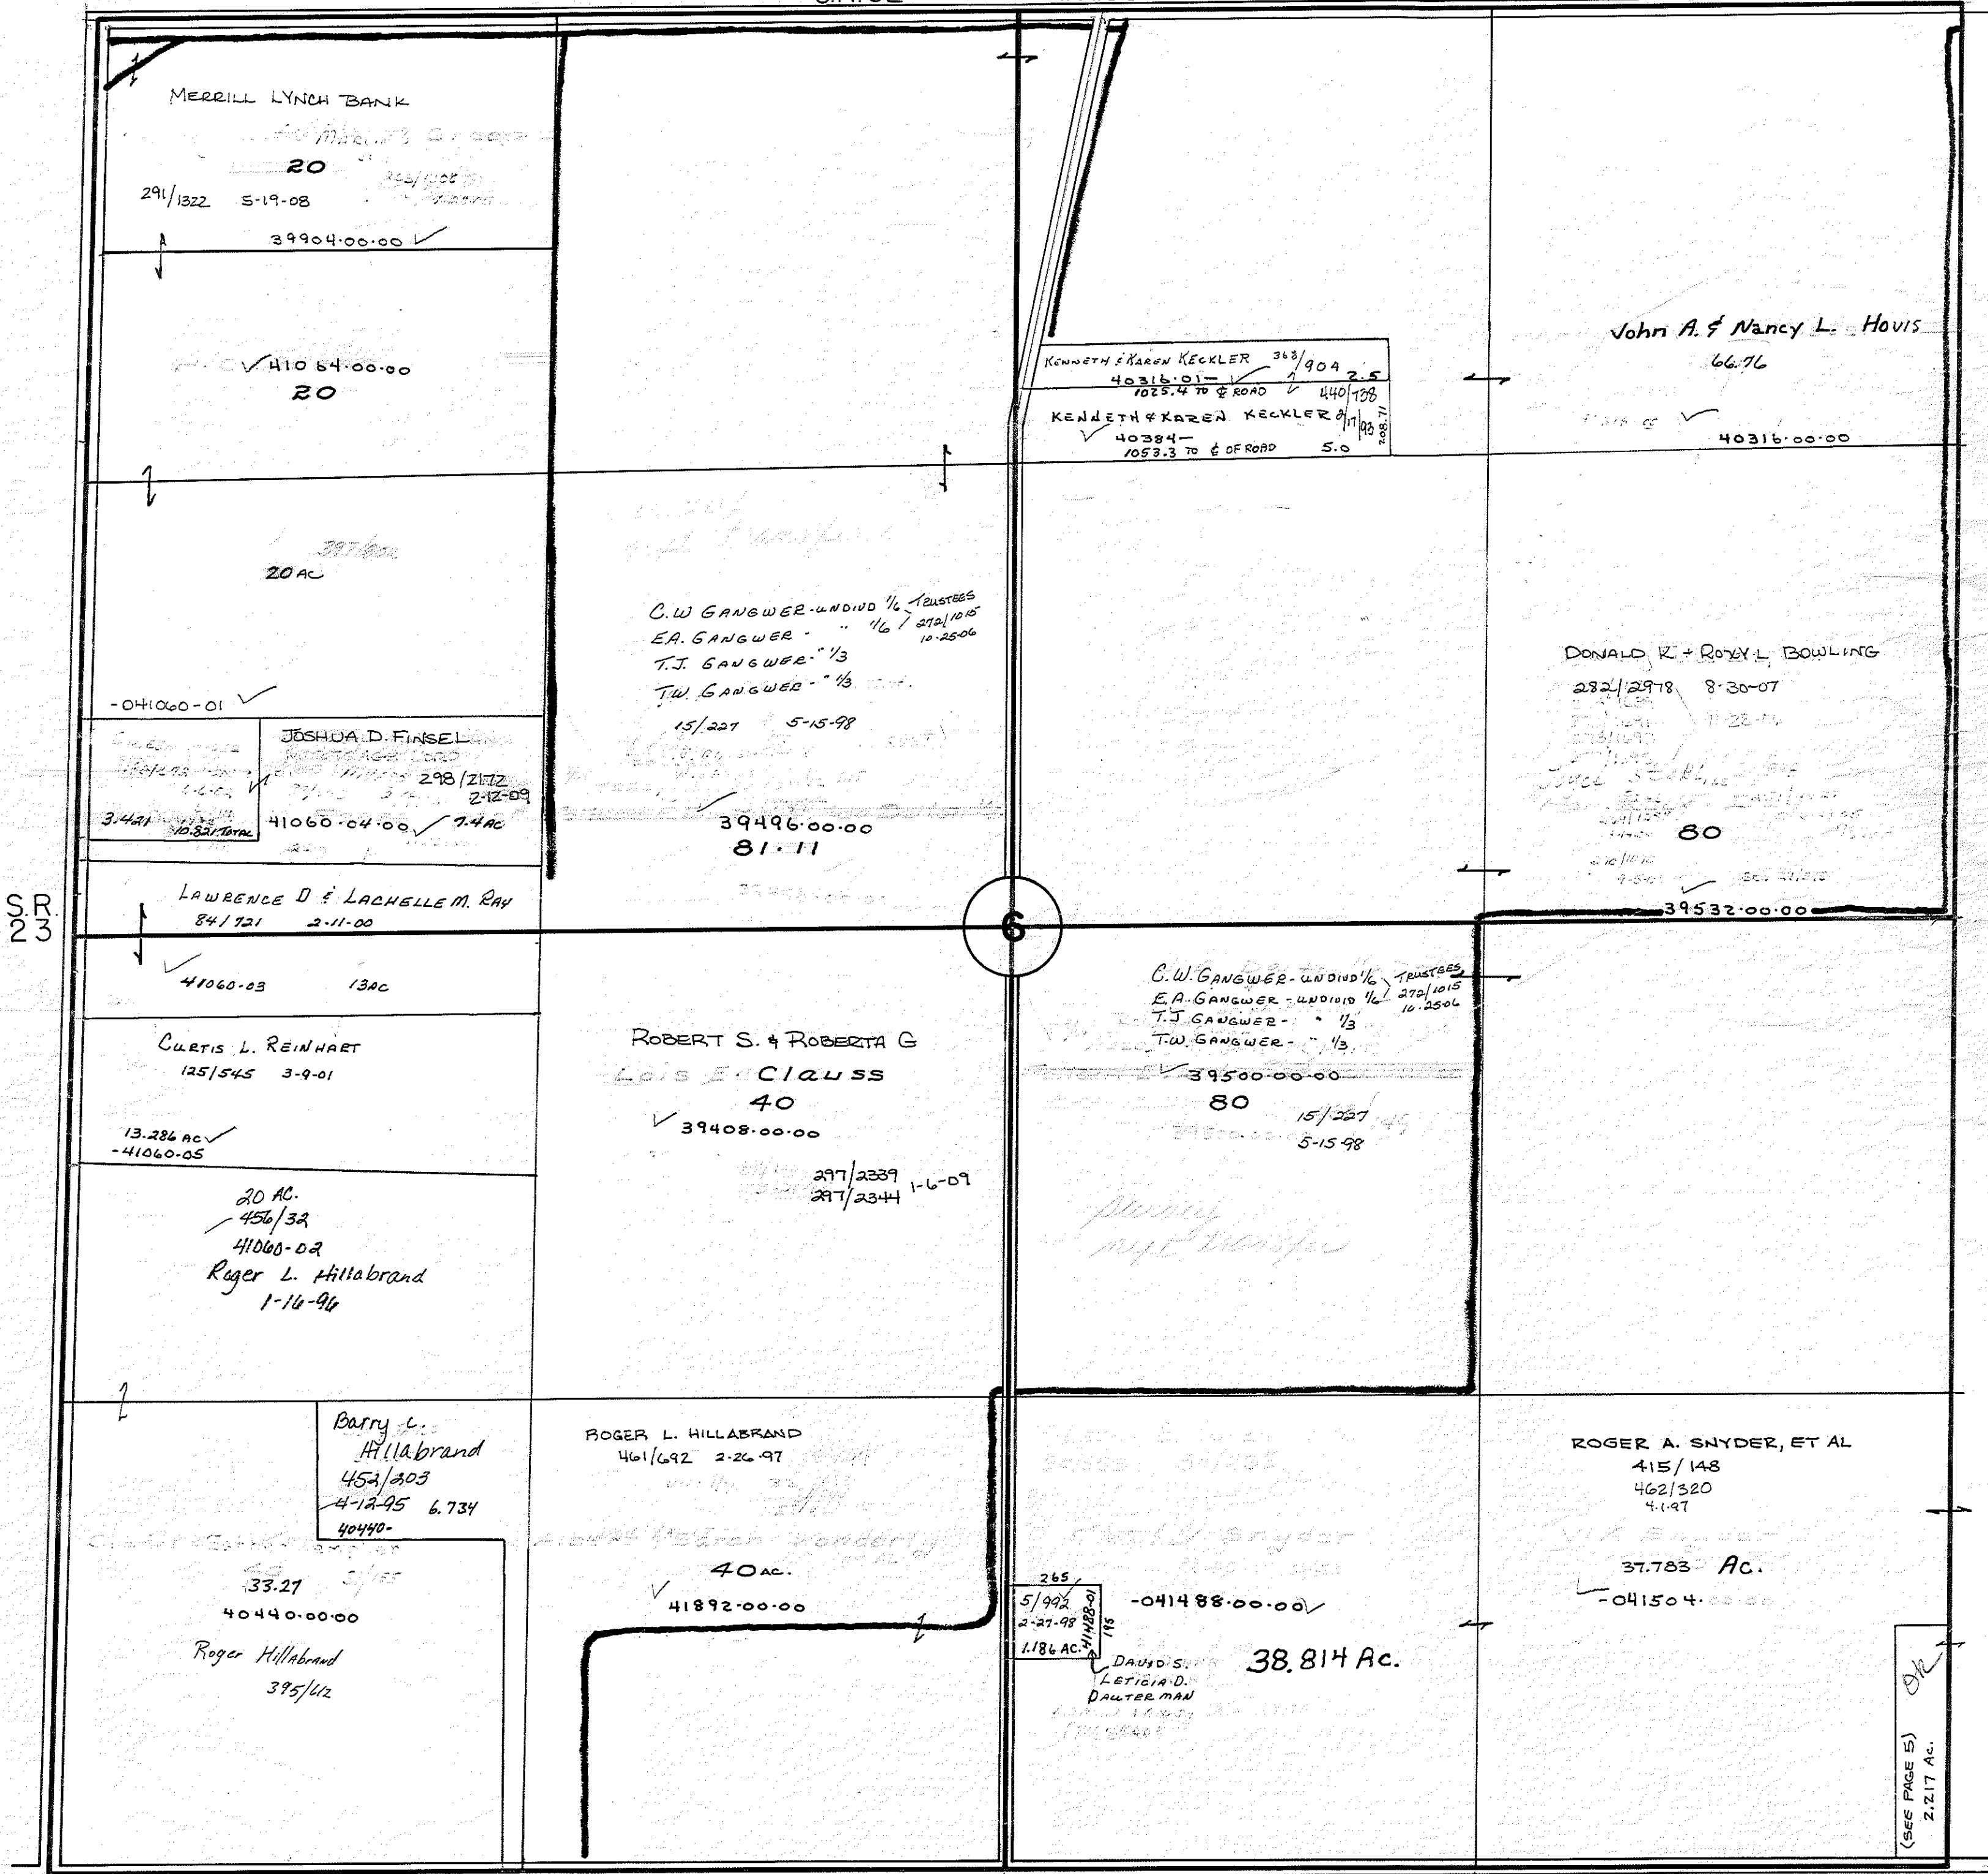 MERRILL LYNCH BANK
20
291/1322 5-19-08
39904.00.00 ✓
✓ 41064.00.00
20
397/802
20 AC
-041060-01 ✓
JOSHUA D. FINSEL
298/2172
2-12-09
41060-04.00 ✓ 7.4 AC
3.421
10.821 TOTAL
LAWRENCE D & LACHELLE M. RAY
84/721 2-11-00
S.R.
23
✓ 41060-03 13AC
CURTIS L. REINHART
125/545 3-9-01
13.286 AC ✓
-41060-05
20 AC.
456/32
41060-02
Roger L. Hillabrand
1-16-96
Barry L.
Hillabrand
452/203
4-12-95 6.734
40440-
33.27
40440.00.00
Roger Hillabrand
395/612
C.W GANGWER-UNDIVD 1/6 TRUSTEES
E.A. GANGWER - " 1/6 272/1015
10-25-06
T.J. GANGWER - " 1/3
T.W. GANGWER - " 1/3
15/227 5-15-98
✓
39496.00.00
81.11
6
ROBERT S. & ROBERTA G
Lois E. Clauss
40
✓ 39408.00.00
297/2339
297/2344 1-6-09
ROGER L. HILLABRAND
461/692 2-26-97
40 AC.
✓ 41892-00.00
KENNETH & KAREN KECKLER 368/904
40316-01- ✓ 2.5
1025.4 TO ℄ ROAD 440/738
KENNETH & KAREN KECKLER 2/17/93
208.71
✓ 40384-
1053.3 TO ℄ OF ROAD 5.0
John A. & Nancy L. Hovis
66.76
✓
40316.00.00
DONALD K + ROXY L BOWLING
282/2978 8-30-07
80
✓
39532.00.00
C.W. GANGWER-UNDIVD 1/6 TRUSTEES
E.A. GANGWER - UNDIVID 1/6 272/1015
10-25-06
T.J GANGWER - " 1/3
T.W. GANGWER - " 1/3
✓ 39500.00.00
80
15/227
5-15-98
transfer
Snyder
265
5/992
2-27-98
1.186 AC.
41488-01
195
-041488.00.00 ✓
38.814 Ac.
DAVID S.
LETICIA D.
DAUTERMAN
ROGER A. SNYDER, ET AL
415/148
462/320
4-1-97
37.783 Ac.
-041504.
(SEE PAGE 5)
2.217 Ac.
OK